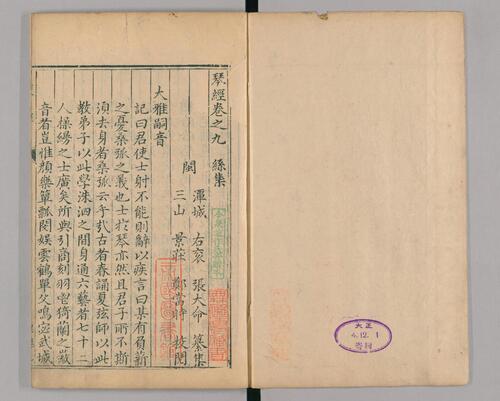 琴經卷之九 絲集
潭城 右袞 張大命 纂集
閩
三山 景莊 鄭當時 校閱
大雅嗣音
記曰君使士射不能則辭以疾言曰某有負薪
之憂桑弧之義也士於琴亦然且君子所不斯
須去身者桑弧云乎哉古者春誦夏弦師以此
教弟子以此學洙泗之間身通六藝者七十二
人操縵之士廣矣所與引商刻羽電猗蘭之葳
音者豈惟顏樂簞瓢閔娛雲鶴單父鳴宓武城
大正
4.12.1
寄附